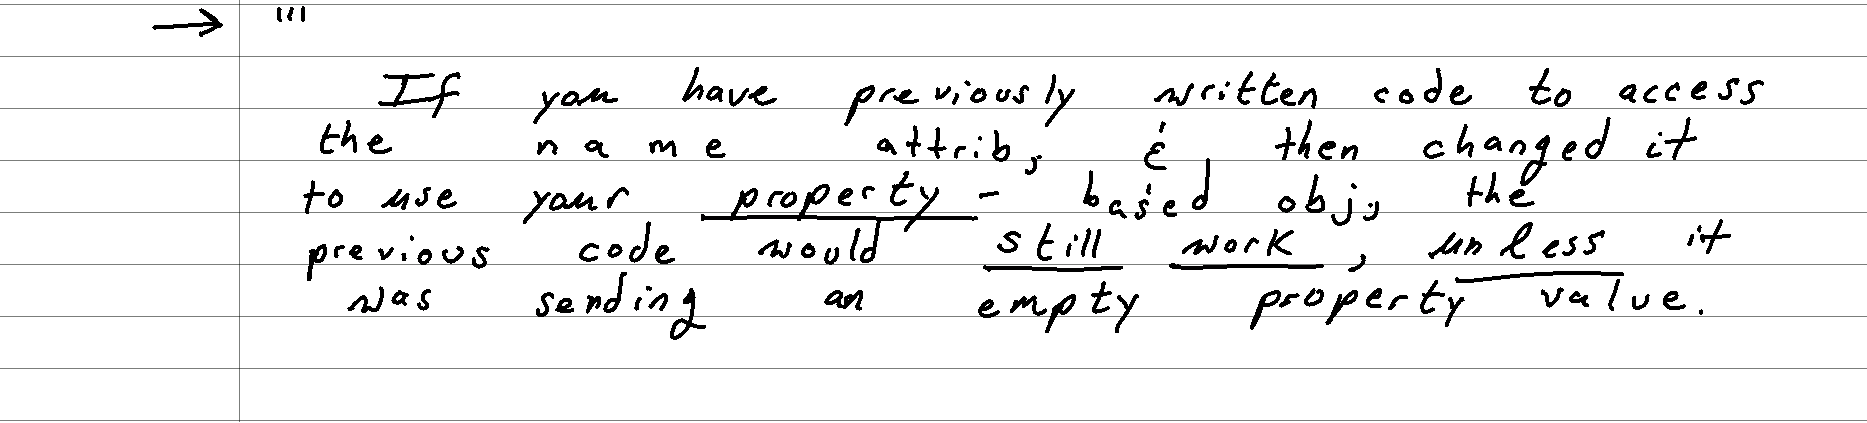 → '''
If you have previously written code to access
the name attrib, & then changed it
to use your property-based obj, the
previous code would still work, unless it
was sending an empty property value.